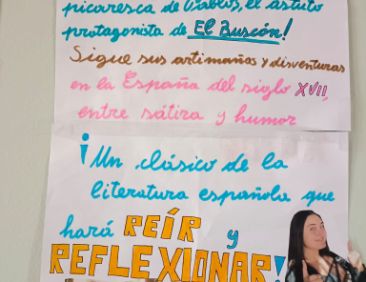 picaresca de Pablos, el astuto
protagonista de El Buscón!
Sigue sus artimañas y disventuras
en la España del siglo XVII,
entre sátira y humor
¡Un clásico de la
literatura española que
hará REÍR y
REFLEXIONAR!